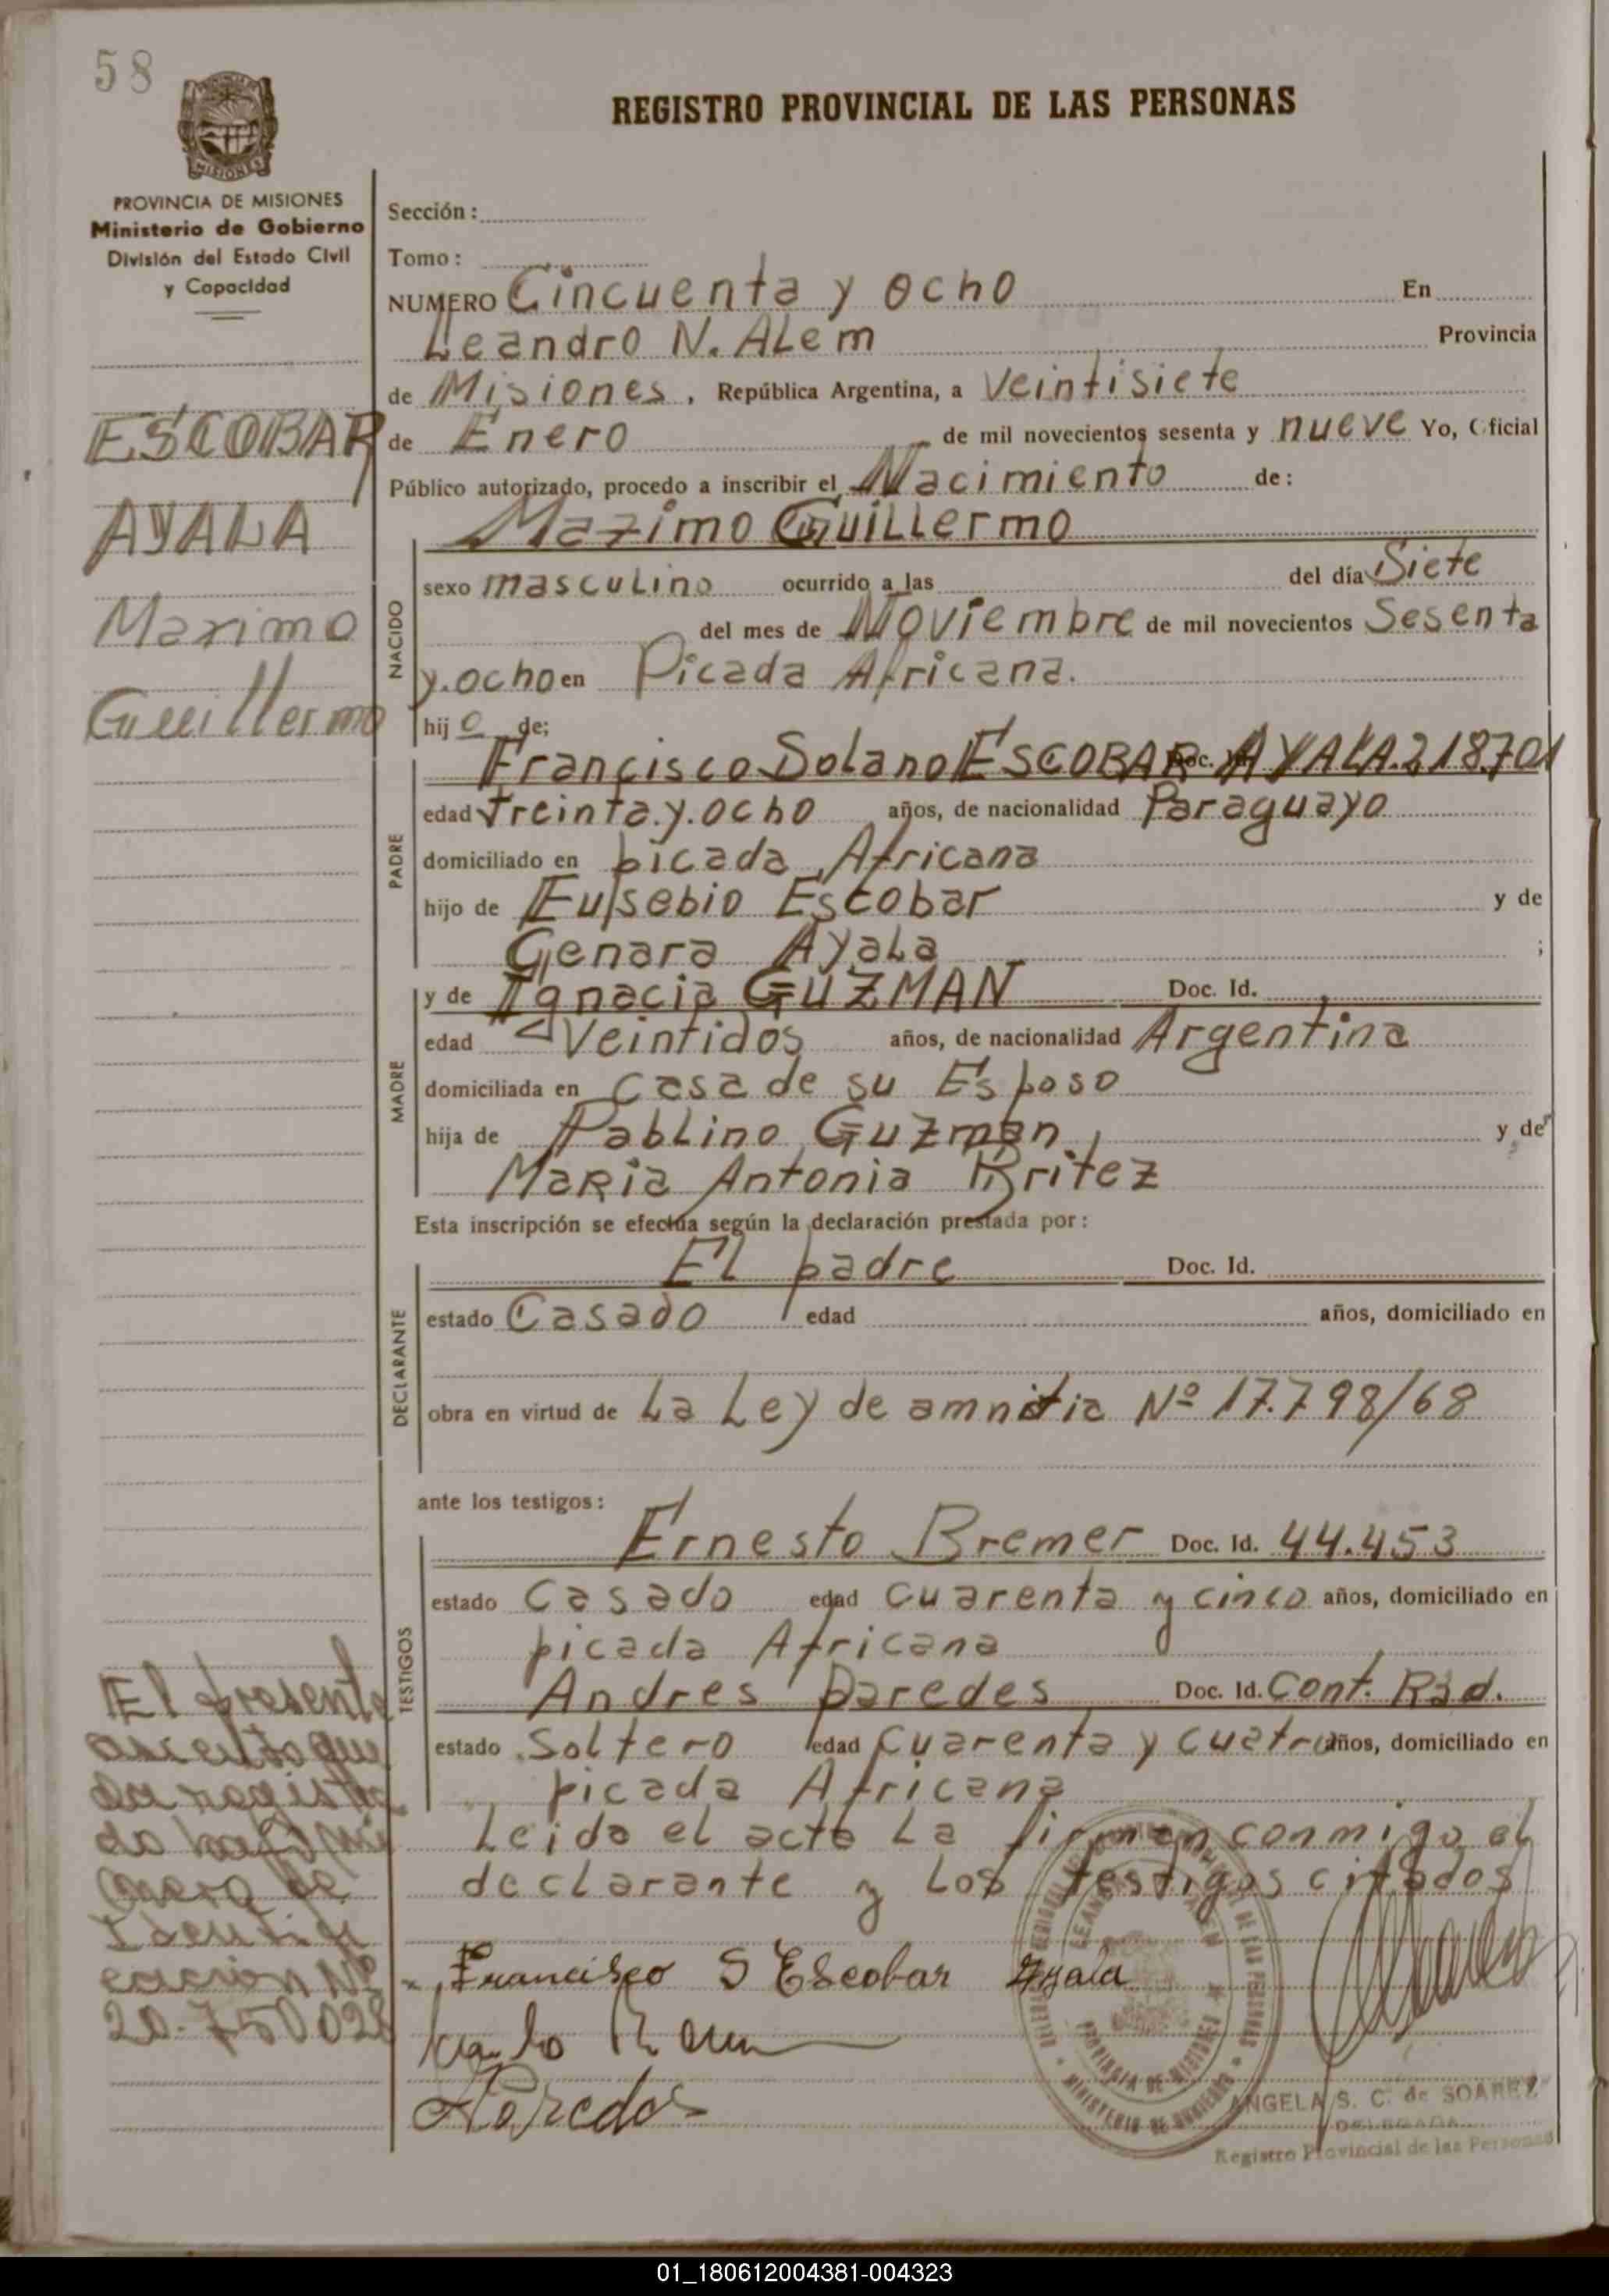 58
REGISTRO PROVINCIAL DE LAS PERSONAS
MISIONES
PROVINCIA DE MISIONES
Ministerio de Gobierno
División del Estado Civil
y Capacidad
ESCOBAR
AYALA
Maximo
Guillermo
Sección:
Tomo:
NUMERO Cincuenta y ocho En
Leandro N. ALem Provincia
de Misiones, República Argentina, a veintisiete
de Enero de mil novecientos sesenta y nueve Yo, Oficial
Público autorizado, procedo a inscribir el Nacimiento de:
Maximo Guillermo
NACIDO
sexo masculino ocurrido a las del día Siete
del mes de Noviembre de mil novecientos Sesenta
y ocho en Picada Africana.
hijo de;
PADRE
Francisco Solano ESCOBAR Doc. AYALA. 218.701
edad treinta y ocho años, de nacionalidad Paraguayo
domiciliado en picada Africana
hijo de Eusebio Escobar y de
Genara Ayala ;
MADRE
y de Ignacia GUZMAN Doc. Id.
edad Veintidos años, de nacionalidad Argentina
domiciliada en casa de su Esposo
hija de Pablino Guzman y de
Maria Antonia Britez
Esta inscripción se efectúa según la declaración prestada por:
DECLARANTE
El padre Doc. Id.
estado Casado edad años, domiciliado en
obra en virtud de La Ley de amnitia Nº 17.798/68
ante los testigos:
TESTIGOS
Ernesto Bremer Doc. Id. 44.453
estado Casado edad cuarenta y cinco años, domiciliado en
picada Africana
Andres paredes Doc. Id. Cont. Rad.
estado Soltero edad Cuarenta y cuatro años, domiciliado en
picada Africana
Leido el acto La firman conmigo el
declarante y Los testigos citados
Francisco S Escobar Ayala
Paredes
El presente
asiento que
da registra
do bajo
mero de
Identifi
cacion Nº
20.750.028
PROVINCIA DE MISIONES
MINISTERIO DE GOBIERNO
ANGELA S. C. de SOAREZ
DELEGADA
Registro Provincial de las Personas
01_180612004381-004323